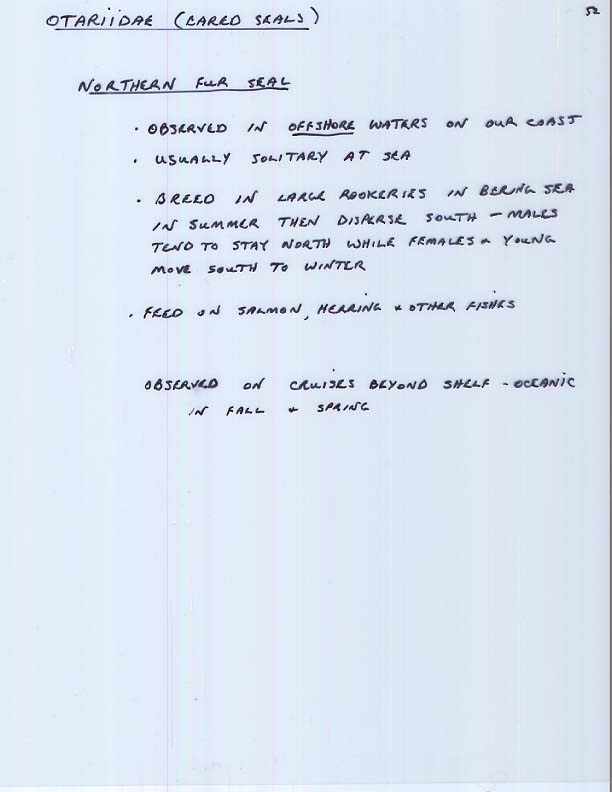 52
OTARIIDAE (EARED SEALS)
NORTHERN FUR SEAL
· OBSERVED IN OFFSHORE WATERS ON OUR COAST
· USUALLY SOLITARY AT SEA
· BREED IN LARGE ROOKERIES IN BERING SEA
IN SUMMER THEN DISPERSE SOUTH – MALES
TEND TO STAY NORTH WHILE FEMALES & YOUNG
MOVE SOUTH TO WINTER
· FEED ON SALMON, HERRING & OTHER FISHES
OBSERVED ON CRUISES BEYOND SHELF - OCEANIC
IN FALL & SPRING